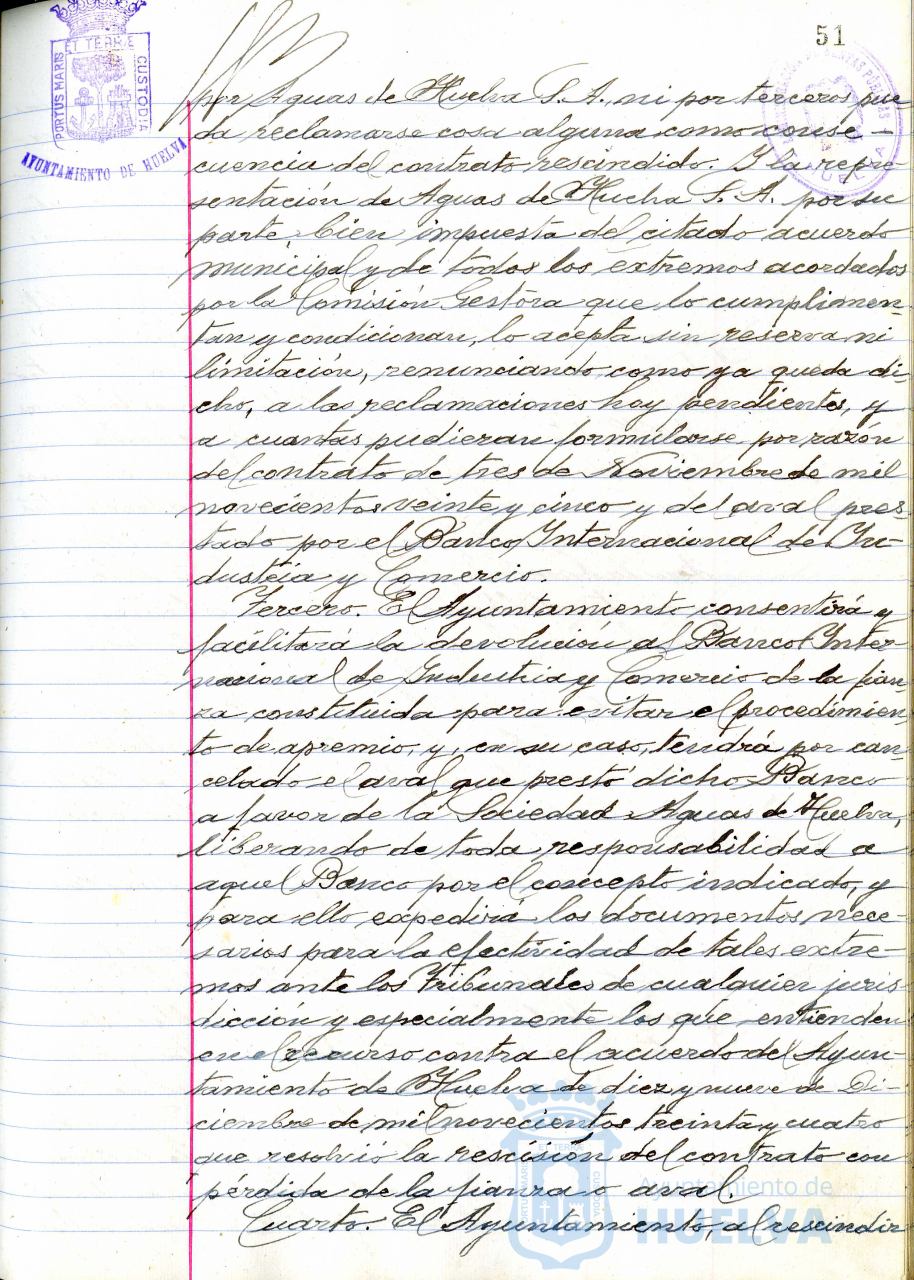 51
ET TERRÆ
PORTUS MARIS
CUSTODIA
AYUNTAMIENTO DE HUELVA
por Aguas de Huelva S. A., ni por terceros pue-
da reclamarse cosa alguna como conse-
cuencia del contrato rescindido. Y la repre-
sentación de Aguas de Huelva S. A. por su
parte, bien impuesta del citado acuerdo
municipal y de todos los extremos acordados
por la Comisión Gestora que lo cumplimen-
tan y condicionan, lo acepta sin reserva ni
limitación, renunciando, como ya queda di-
cho, a las reclamaciones hoy pendientes, y
a cuantas pudieran formularse por razón
del contrato de tres de Noviembre de mil
novecientos veinte y cinco y del aval pres-
tado por el Banco Internacional de In-
dustria y Comercio.
Tercero. El Ayuntamiento consentirá y
facilitará la devolución al Banco Inter-
nacional de Industria y Comercio de la fian-
za constituida para evitar el procedimien-
to de apremio, y, en su caso, tendrá por can-
celado el aval que prestó dicho Banco
a favor de la Sociedad Aguas de Huelva,
liberando de toda responsabilidad a
aquel Banco por el concepto indicado, y
para ello expedirá los documentos nece-
sarios para la efectividad de tales extre-
mos ante los Tribunales de cualquier juris-
dicción y especialmente los que entienden
en el recurso contra el acuerdo del Ayun-
tamiento de Huelva de diez y nueve de Di-
ciembre de mil novecientos treinta y cuatro
que resolvió la rescisión del contrato con
pérdida de la fianza o aval.
Cuarto. El Ayuntamiento, al rescindir
Ayuntamiento de
HUELVA